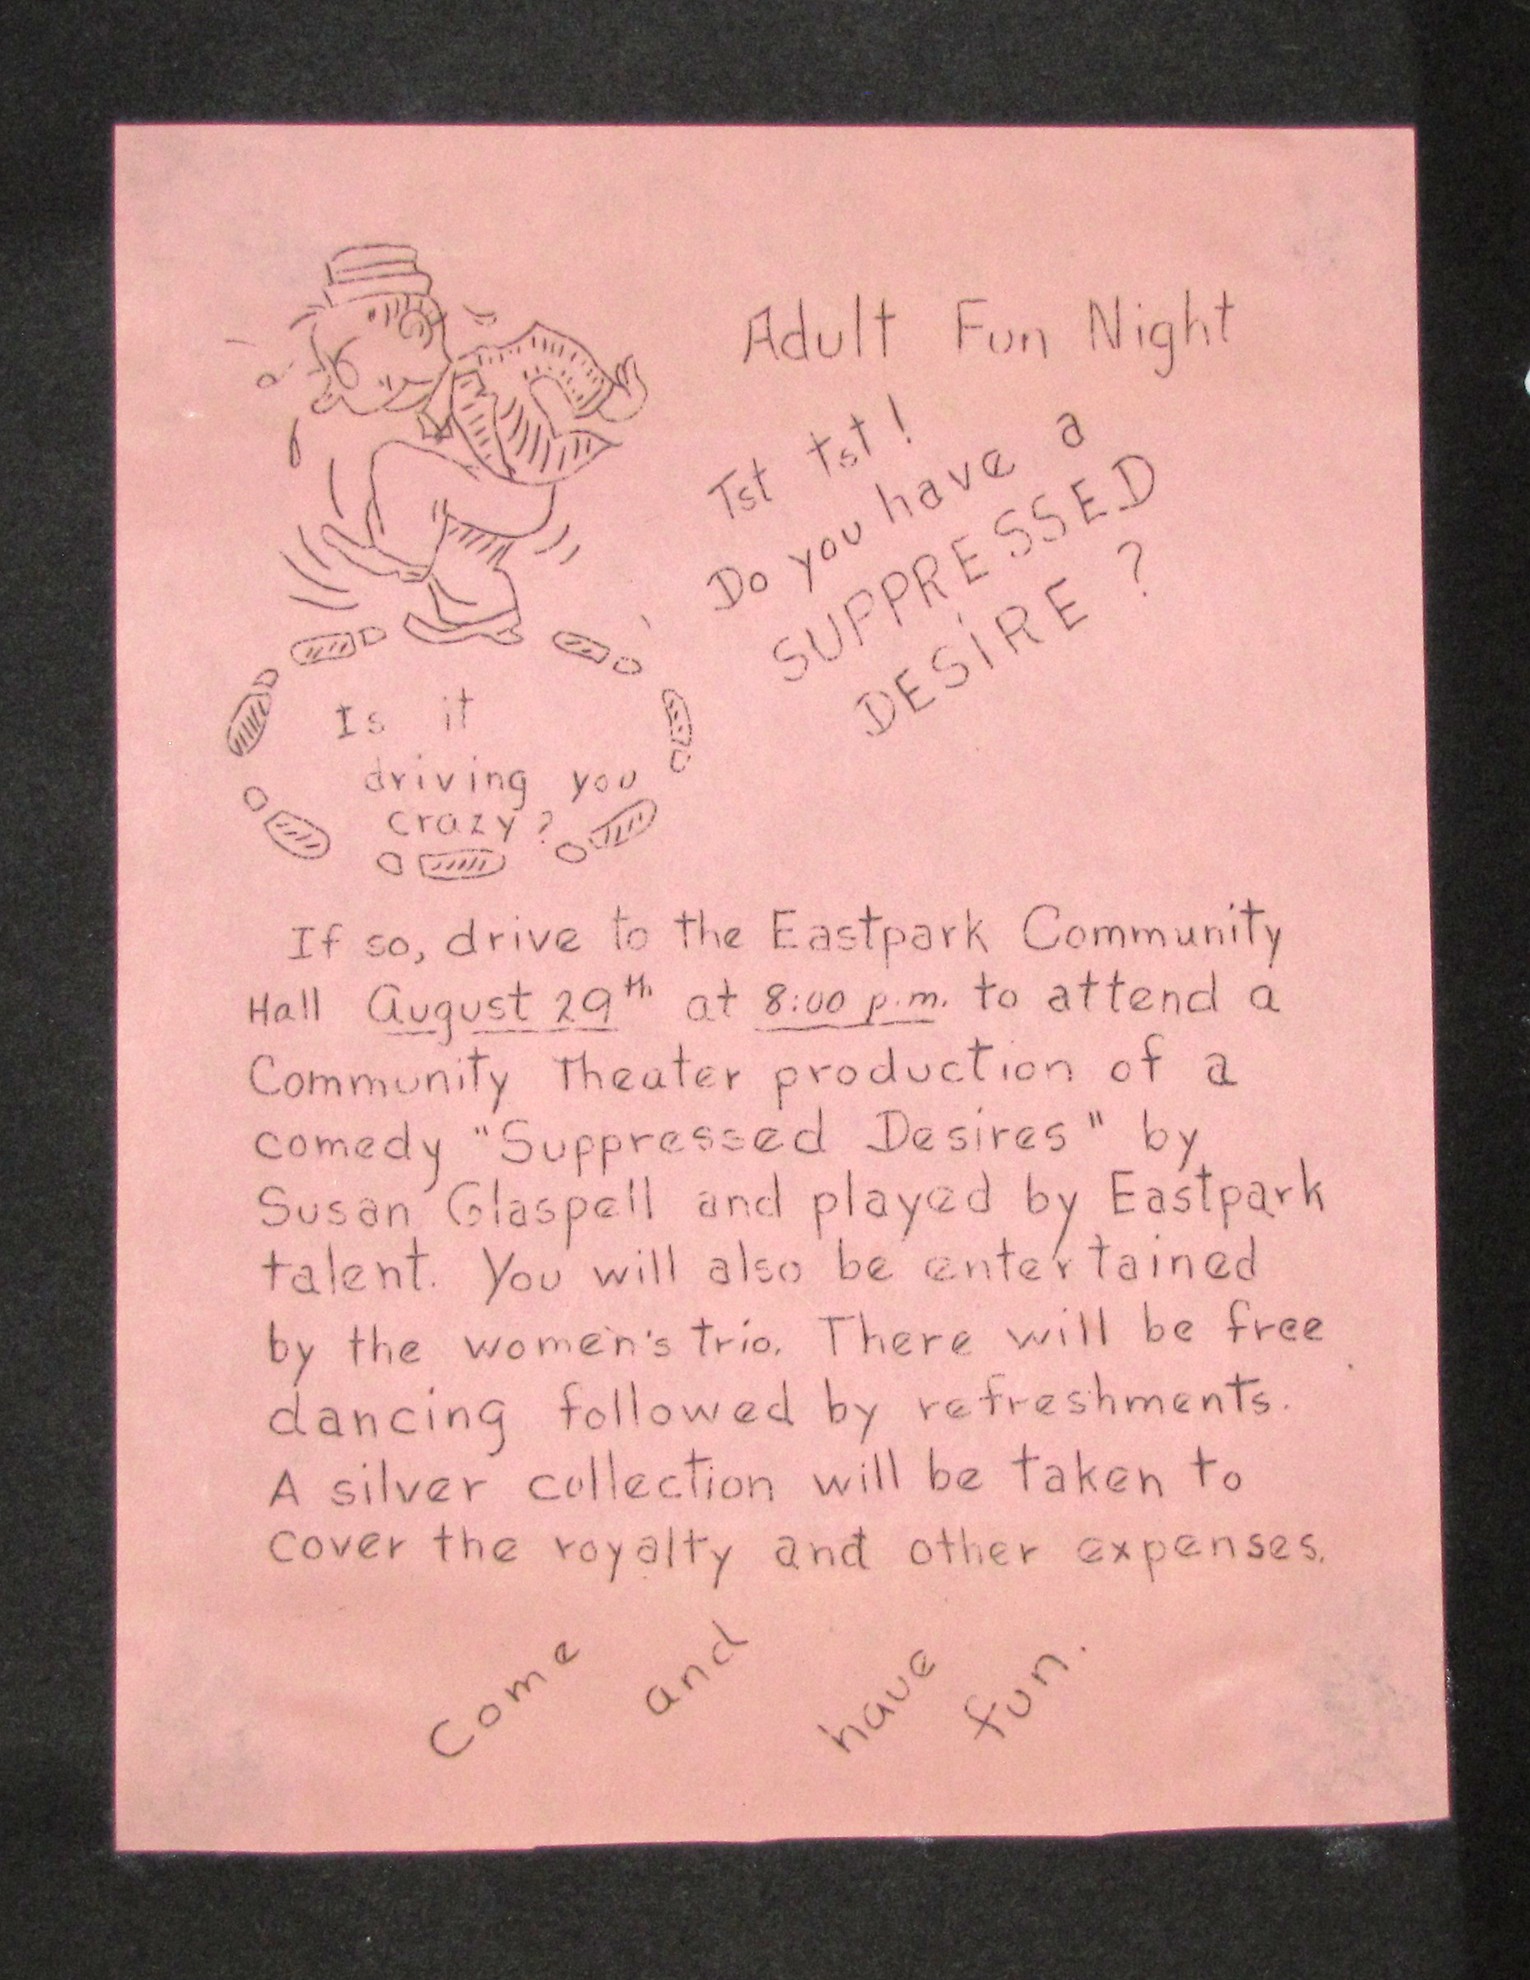 Adult Fun Night
Tst tst!
Do you have a
SUPPRESSED
DESIRE?
Is it
driving you
crazy?
If so, drive to the Eastpark Community
Hall August 29th at 8:00 p.m. to attend a
Community Theater production of a
comedy "Suppressed Desires" by
Susan Glaspell and played by Eastpark
talent. You will also be entertained
by the women's trio. There will be free
dancing followed by refreshments.
A silver collection will be taken to
cover the royalty and other expenses.
Come and have fun.